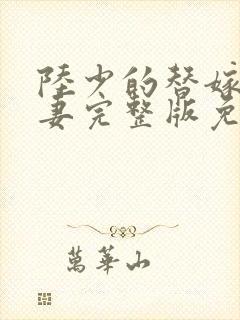 陸少的替嫁
妻完整版免
萬華山